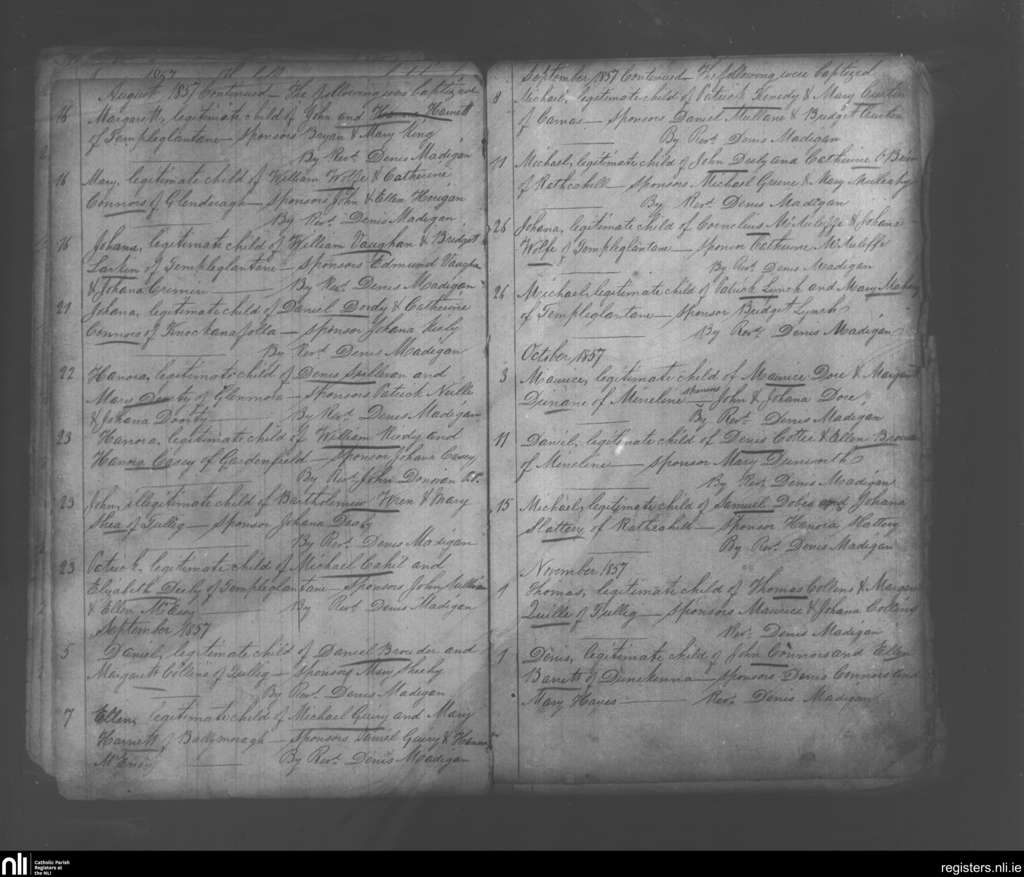 August 1857 Continued — The following were baptized
16 Margarett, legitimate child of John and Hanna Harnett
of Templeglantane — Sponsors Bryan & Mary King
By Revd. Denis Madigan
16 Mary, legitimate child of William Wolfe & Catherine
Connors of Glenduragh — Sponsors John & Ellen Horigan
By Revd. Denis Madigan
16 Johana, legitimate child of William Vaughan & Bridget
Larkin of Templeglantane — Sponsors Edmund Vaughan
& Johana Cremin — By Revd. Denis Madigan
21 Johana, legitimate child of Daniel Dordy & Catherine
Connors of Knockanafolla — Sponsor Johana Hesly
By Revd. Denis Madigan
22 Hanora, legitimate child of Denis Sullivan and
Mary Denby of Glenmore — Sponsors Patrick Neille
& Johana Doorby By Revd. Denis Madigan
23 Hanora, legitimate child of William Kirdy and
Hanora Casey of Gardenfield — Sponsor Johana Casey
By Revd. John Donovan
23 John, illegitimate child of Bartholomew Wren & Mary
Shea of Tullig — Sponsor Johana Deaby
By Revd. Denis Madigan
23 Patrick, legitimate child of Michael Cahil and
Elizabeth Deely of Templeglantane — Sponsors John Sullivan
& Ellen McEniry By Revd Denis Madigan
September 1857
5 Daniel, legitimate child of Daniel Browder and
Margarett Collins of Tullig — Sponsors Mary Sheehy
By Revd. Denis Madigan
7 Ellen, legitimate child of Michael Guiry and Mary
Harnett of Ballymurragh — Sponsors Daniel Guiry & Hanora
McEniry By Revd. Denis Madigan
September 1857 Continued — The following were baptized
8 Michael, legitimate child of Patrick Kenedy & Mary Curtin
of Camas — Sponsors Daniel Mullane & Bridget Curtin
By Revd. Denis Madigan
11 Michael, legitimate child of John Deely and Catherine O'Brien
of Rathcahill — Sponsors Michael Greene & Mary Mulcahy
By Revd. Denis Madigan
26 Johana, legitimate child of Cornelius McAuliffe & Johana
Wolfe of Templeglantane — Sponsor Catherine McAuliffe
By Revd. Denis Madigan
26 Michael, legitimate child of Patrick Lynch and Mary Mahony
of Templeglantane — Sponsor Bridget Lynch
By Revd. Denis Madigan
October 1857
3 Maurice, legitimate child of Maurice Dore & Margarett
of Meneline — Sponsors John & Johana Dore
By Revd. Denis Madigan
11 Daniel, legitimate child of Denis Cotter & Ellen Browne
of Meneline — Sponsor Mary Dunworth
By Revd. Denis Madigan
15 Michael, legitimate child of Samuel Dolea and Johana
Slattery of Rathcahill — Sponsor Hanora Slattery
By Revd. Denis Madigan
November 1857
1 Thomas, legitimate child of Thomas Collins & Margarett
Quille of Tullig — Sponsors Maurice & Johana Collins
Revd. Denis Madigan
1 Denis, legitimate child of John Connors and Ellen
Barrett of Dunekenna — Sponsors Denis Connors and
Mary Hanes — Revd. Denis Madigan
nli Catholic Parish
Registers at
the NLI
registers.nli.ie